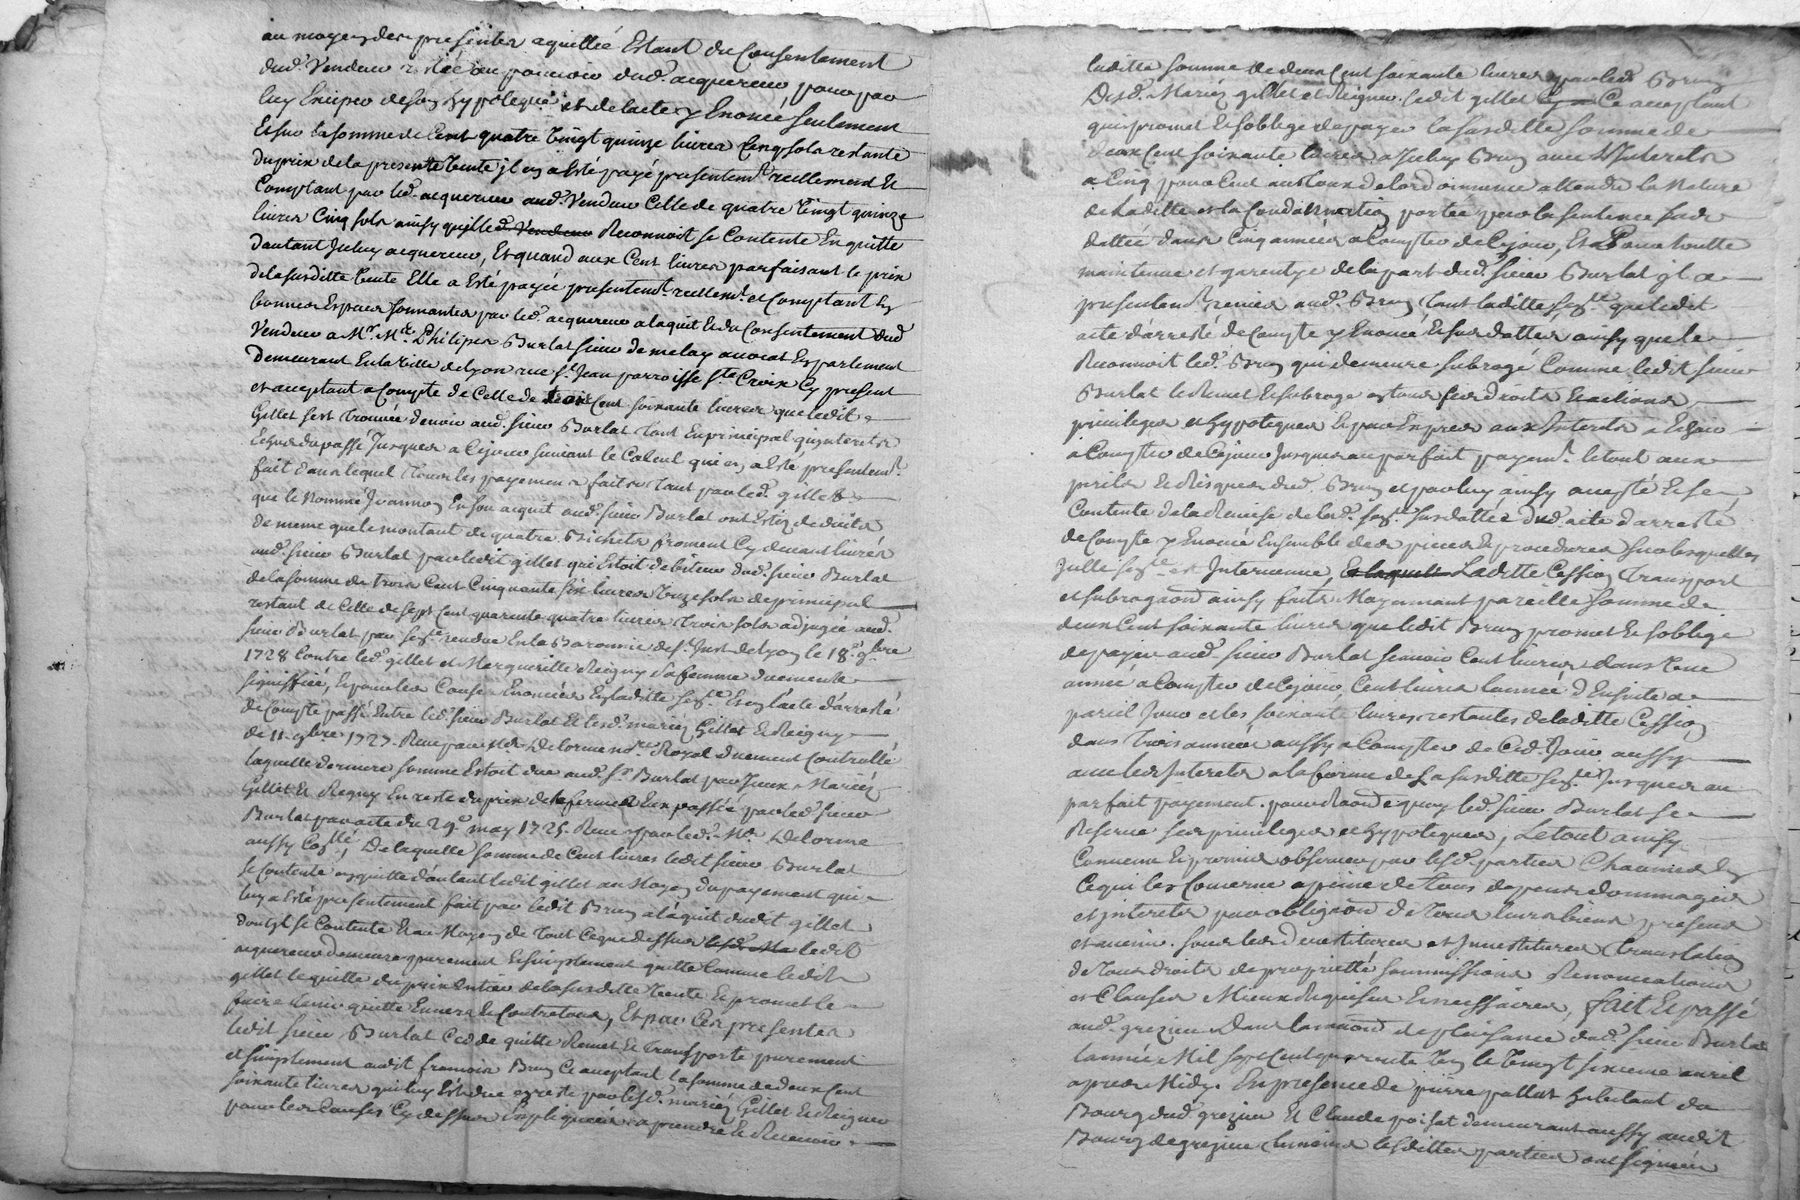 au moyen des presentes aquittée Estant du Consentement
dud. Vendeur restée au pouvoir dud. acquereur pour par
luy Exiper de son hypoteque et de lacte y Enoncé seulement
Et sur la somme de Cent quatre Vingt quinze livres Cinq sols restante
du prix de la presente Vente il en a Esté payé presentemt. reellement Et
Comptant par led. acquereur aud. Vendeur Celle de quatre Vingt quinze
livres Cinq sols ainsy quil led. Vendeur Reconnoit se Contente En quitte
dautant Jceluy acquereur, Et quand aux Cent livres parfaisant le prix
de la susditte Vente Elle a Esté payée presentemt. reellemt. et Comptant En
bonnes Especes sonnantes par led. acquereur a laquit Et du Consentement dud.
Vendeur a Mr. Me. Philipes Burlat sieur de melay avocat En parlement
demeurant En la ville de Lyon rue St. Jean parroisse Ste. Croix Cy present
et acceptant a Compte de Celle de trois Cent soixante livres que ledit
Gillet sest Trouvée devoir aud. sieur Burlat Tant En principal qinterets
Echus du passé Jusques a Cejour suivant le Calcul qui en a Esté presentemt.
fait dans lequel Tous les payements faits Tant par led. gillet
que le nommé Jvannon En son acquit aud. sieur Burlat ont Esté deduits
de meme que le montant de quatre Bichets froment Cy devant livrés
aud. sieur Burlat par ledit gillet qui Estoit debiteur dud. sieur Burlat
de la somme de Trois Cent Cinquante six livres Treze sols de principal
restant de Celle de sept Cent quarente quatre livres Trois sols adjugée aud.
sieur Burlat par sexe. rendue En la Baronnie de St. Just de Lyon le 18e. 9bre
1728 Contre led. gillet et Margueritte Reigny sa femme duement
signiffiée, Et pour les Causes Enoncées En laditte sexe. Et En lacte darresté
de Compte passé Entre led. sieur Burlat Et lesd. mariez Gillet Et Reigny
de 11. 9bre 1727. Reçu par Me. Delorme nore. Royal duement Controllé
laquelle derniere somme Estoit due aud. Sr. Burlat par Jceux Mariez
Gillet Et Regny En reste du prix de la ferme a Eux passée par led. sieur
Burlat par acte du 29e. may 1725. Reçu par led. Me. Delorme
aussy Collé, De laquelle somme de Cent livres ledit sieur Burlat
se Contente en quitte dautant ledit gillet au Moyen du payement qui
luy a Esté presentement fait par ledit Brun a laquit dudit gillet
dont il se Contente Et au Moyen de Tout Ceque dessus ledit
acquereur demeure purement Et simplement quitte Comme ledit
gillet le quitte du prix Entier de la susditte Vente Et promet le
faire Tenir quitte Envers Et Contre tous, Et par Ces presentes
ledit sieur Burlat Cede quitte Remet Et Transporte purement
et simplement audit francois Brun Ce acceptant la somme de deux Cent
soixante livres qui luy Est due de reste par lesd. mariez Gillet Et Reigny
pour les Causes Cy dessus Expliquées a prendre Et Recevoir
laditte somme de deux Cent soixante livres par led. Brun
Desd. Mariez gillet et Reigny ledit gillet Ce acceptant
qui promet Et soblige de payer la susditte somme de
deux Cent soixante livres a Jceluy Brun avec Interets
a Cinq pour Cent au Taux de lordonnance attendu la Nature
de laditte et la Condamnation portée par la sentence susd.
dattée dans Cinq années a Compter de Cejour, Et Pour toutte
maintenue et garentye de la part dud. sieur Burlat il a
presentemt. remis aud. Brun tant laditte sexe. que ledit
acte darresté de Compte y Enoncé Et sus dattes ainsy quele
Reconnoit led. Brun qui demeure subrogé Comme ledit sieur
Burlat le Remet Et subroge en tous ses droits Et actions
privileges et hypoteques Et par Exprès aux Interets a Echoir
a Compter de Cejour Jusques au parfait payemt. le tout aux
perils Et Risques dud. Brun et par luy ainsy accepté Et se
Contente de la Remise de lad. sexe. susdattée dud. acte darresté
de Compte y Enoncé Ensemble des pieces Et procedures sur lesquelles
Jcelle sexe. est Intervenue, Et laquelle Laditte Cession Transport
et subrogaon. ainsy faits Moyennant pareille somme de
deux Cent soixante livres que ledit Brun promet Et soblige
de payer aud. sieur Burlat scavoir Cent livres dans Une
année a Compter de Cejour, Cent livres lannée d'Ensuite a
pareil Jour et les soixante livres restantes de laditte Cession
dans Trois années aussy a Compter de Ced. Jour aussy
avec les Interets a la forme de la susditte sexe. Jusques au
parfait payement. pour Raon. de quoy led. sieur Burlat se
Reserve ses privileges et hypoteques, Le tout ainsy
Convenu Et promis observer par lesd. parties Chacunes En
Cequi les Concerne a peine de Tous depens dommages
et Jnterets par obligaon. de Tous leurs biens presens
et avenir. sous les devestitures et Jnvestitures Translation
de Tous droits de proprietté soumissions Renonciations
et Clauses Mieux Requises Et necessaires, fait Et passé
aud. grezieu Dans la maison de plaisance dud. sieur Burlat
lannée Mil sept Cent quarente Trois le Vingt sixieme avril
apres Midy. En presence de pierre pallus habitant du
Bourg dud. grezieu Et Claude poizat demeurant aussy audit
Bourg de grezieu temoins lesdittes parties ont signées